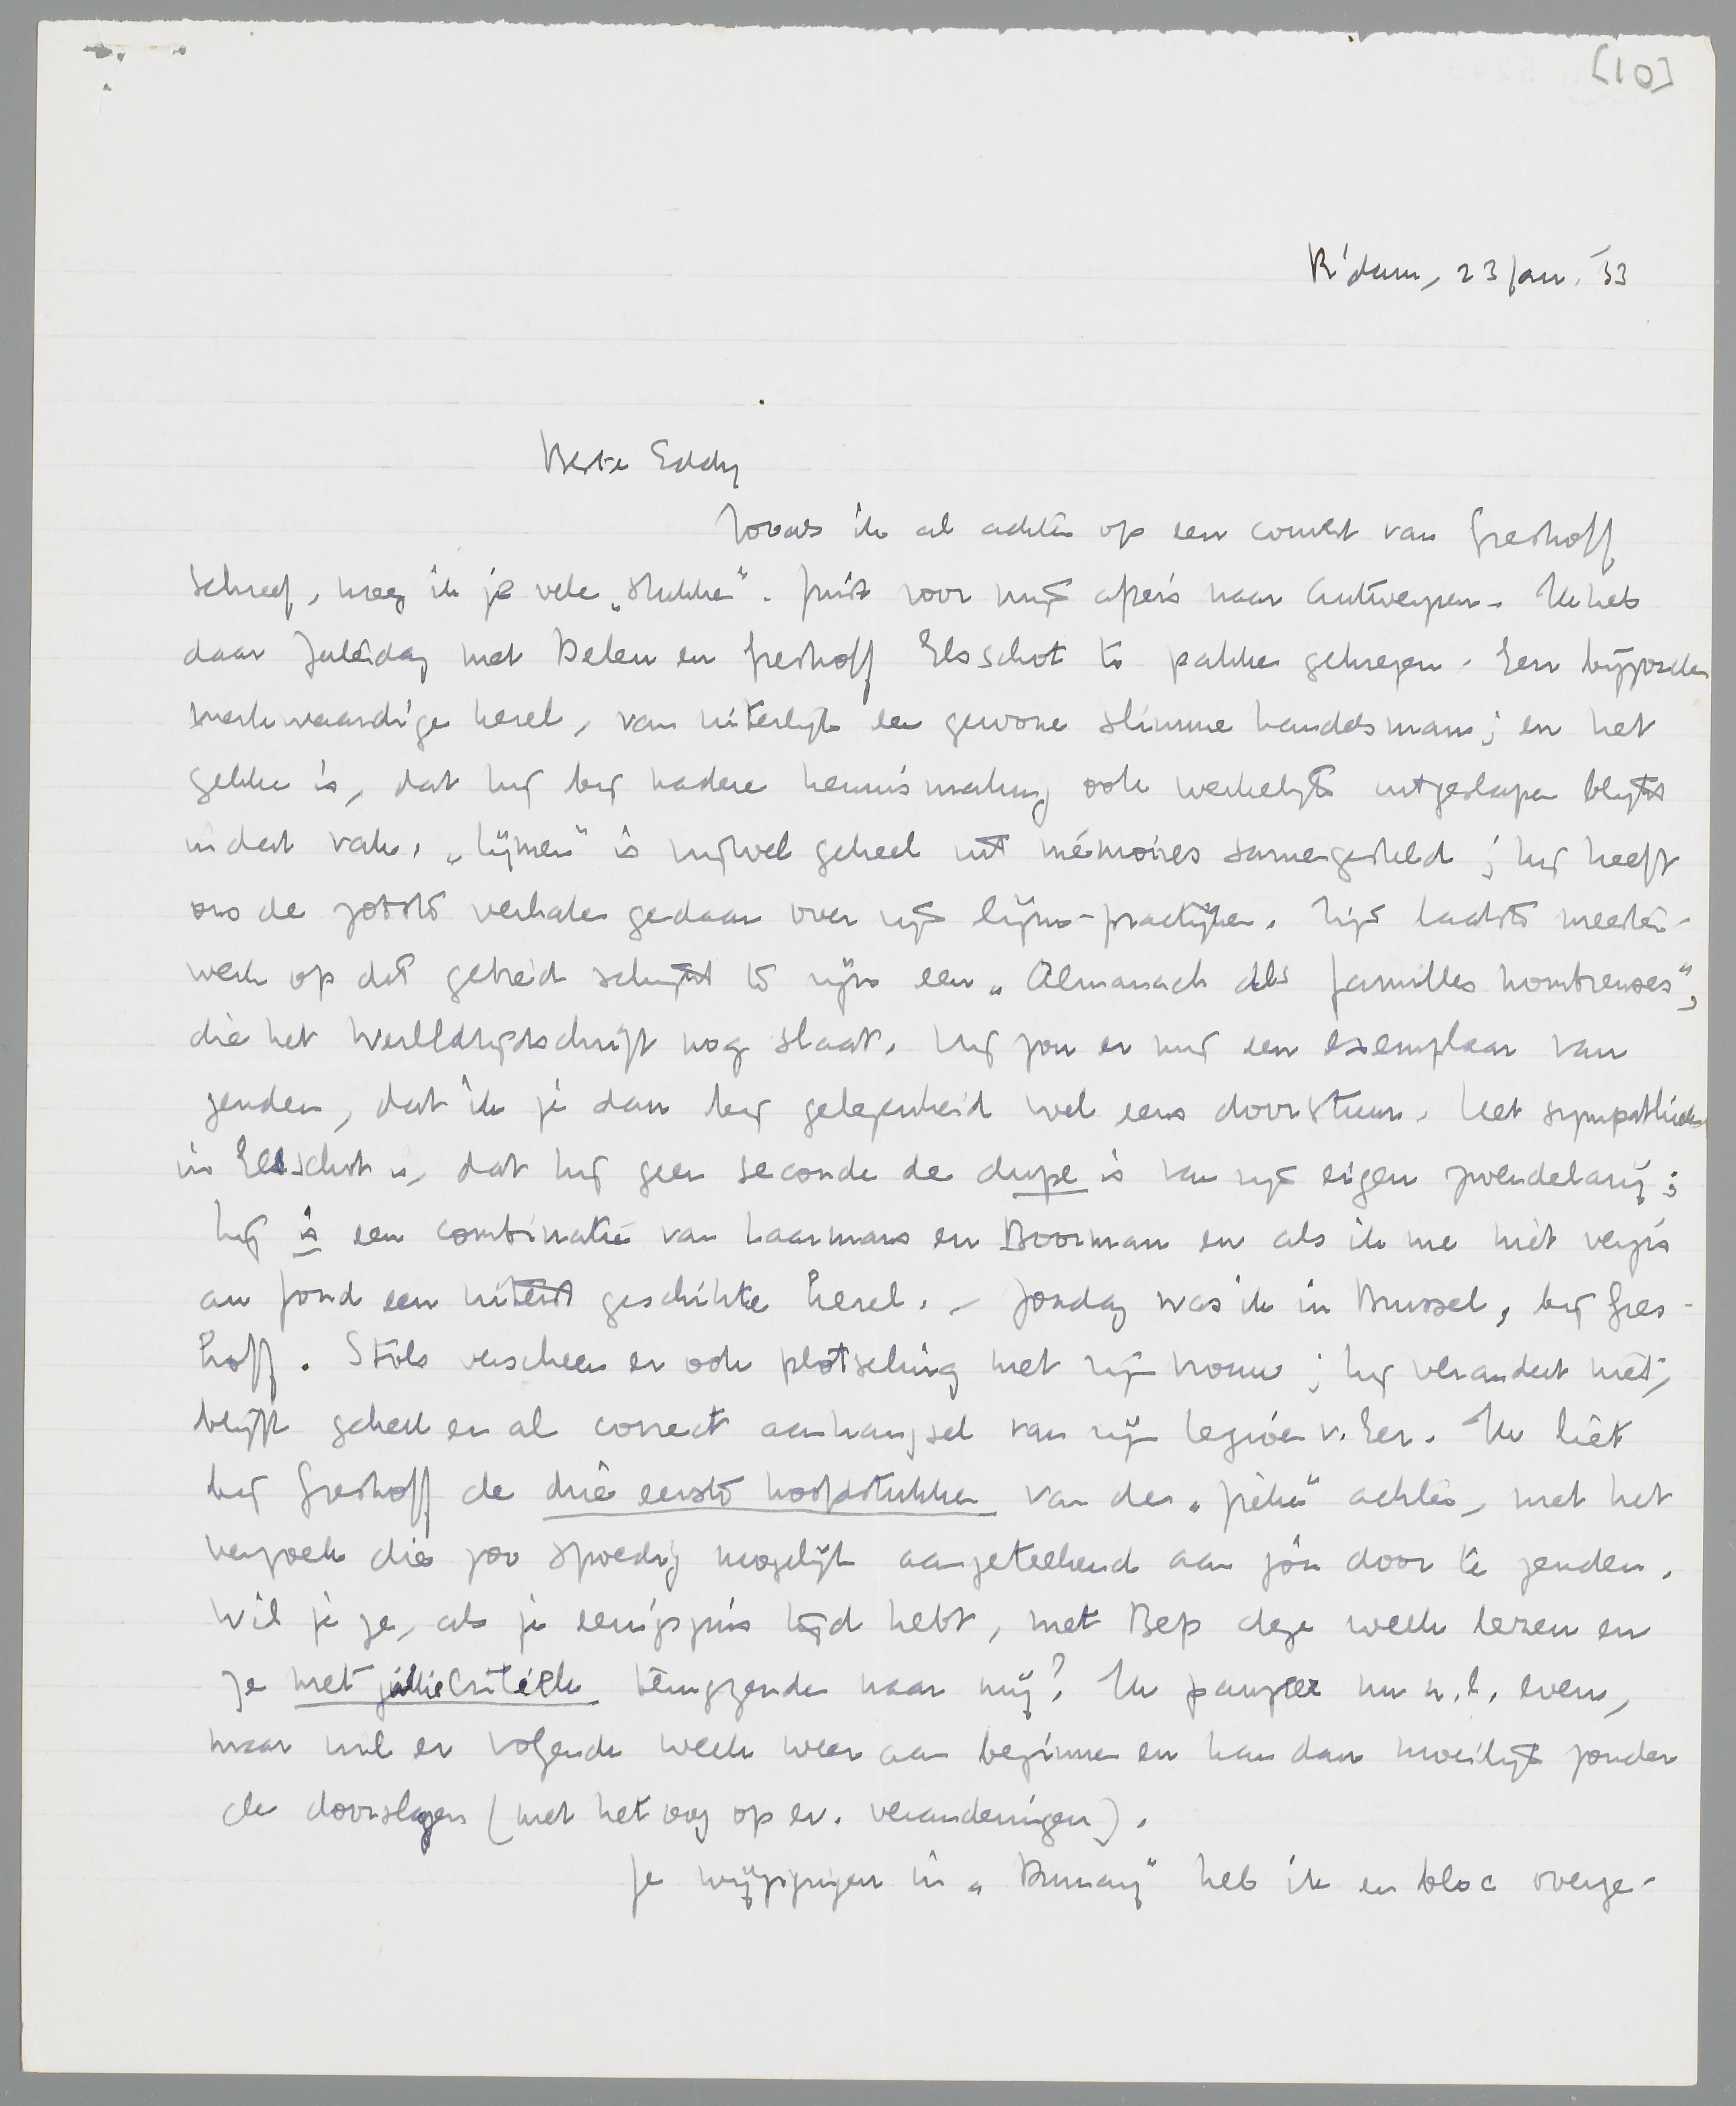 [10]
R'dam, 23 Jan. '33
Beste Eddy
Zooals ik al achter op een couvert van Greshoff
schreef, kreeg ik je vele „stukken". Juist voor mijn afreis naar Antwerpen. Ik heb
daar Zaterdag met Delen en Greshoff Elsschot te pakken gekregen. Een bijzonder
merkwaardige kerel, van uiterlijk een gewone slimme handelsman; en het
gekke is, dat hij bij nadere kennismaking ook werkelijk uitgeslapen blijkt
in dat vak. „Lijmen" is vrijwel geheel uit mémoires samengesteld; hij heeft
ons de zotste verhalen gedaan over zijn lijm-practijken. Zijn laatste meester-
werk op dat gebied schijnt te zijn een „Almanach des familles nombreuses",
die het Wereldtijdschrift nog slaat. Hij zou er mij een exemplaar van
zenden, dat ik je dan bij gelegenheid wel eens doorstuur. Het sympathieke
in Elsschot is, dat hij geen seconde de dupe is van zijn eigen zwendelarij;
hij is een combinatie van Laarmans en Boorman en als ik me niet vergis
au fond een uiterst geschikte kerel. – Zondag was ik in Brussel, bij Gres-
hoff. Stols verscheen er ook plotseling met zijn vrouw; hij verandert niet,
blijft geheel en al correct aanhangsel van zijn legioen v. Eer. Ik liet
bij Greshoff de drie eerste hoofdstukken van den „ achter, met het
verzoek die zoo spoedig mogelijk aangeteekend aan jou door te zenden.
Wil je ze, als je eenigszins tijd hebt, met Bep deze week lezen en
ze met jullie critiek terugzenden naar mij? Ik pauzeer nu n.l. even,
maar wil er volgende week weer aan beginnen en kan dan moeilijk zonder
de doorslagen (met het oog op ev. veranderingen).
Je wijzigingen in „Dumay" heb ik en bloc overge-